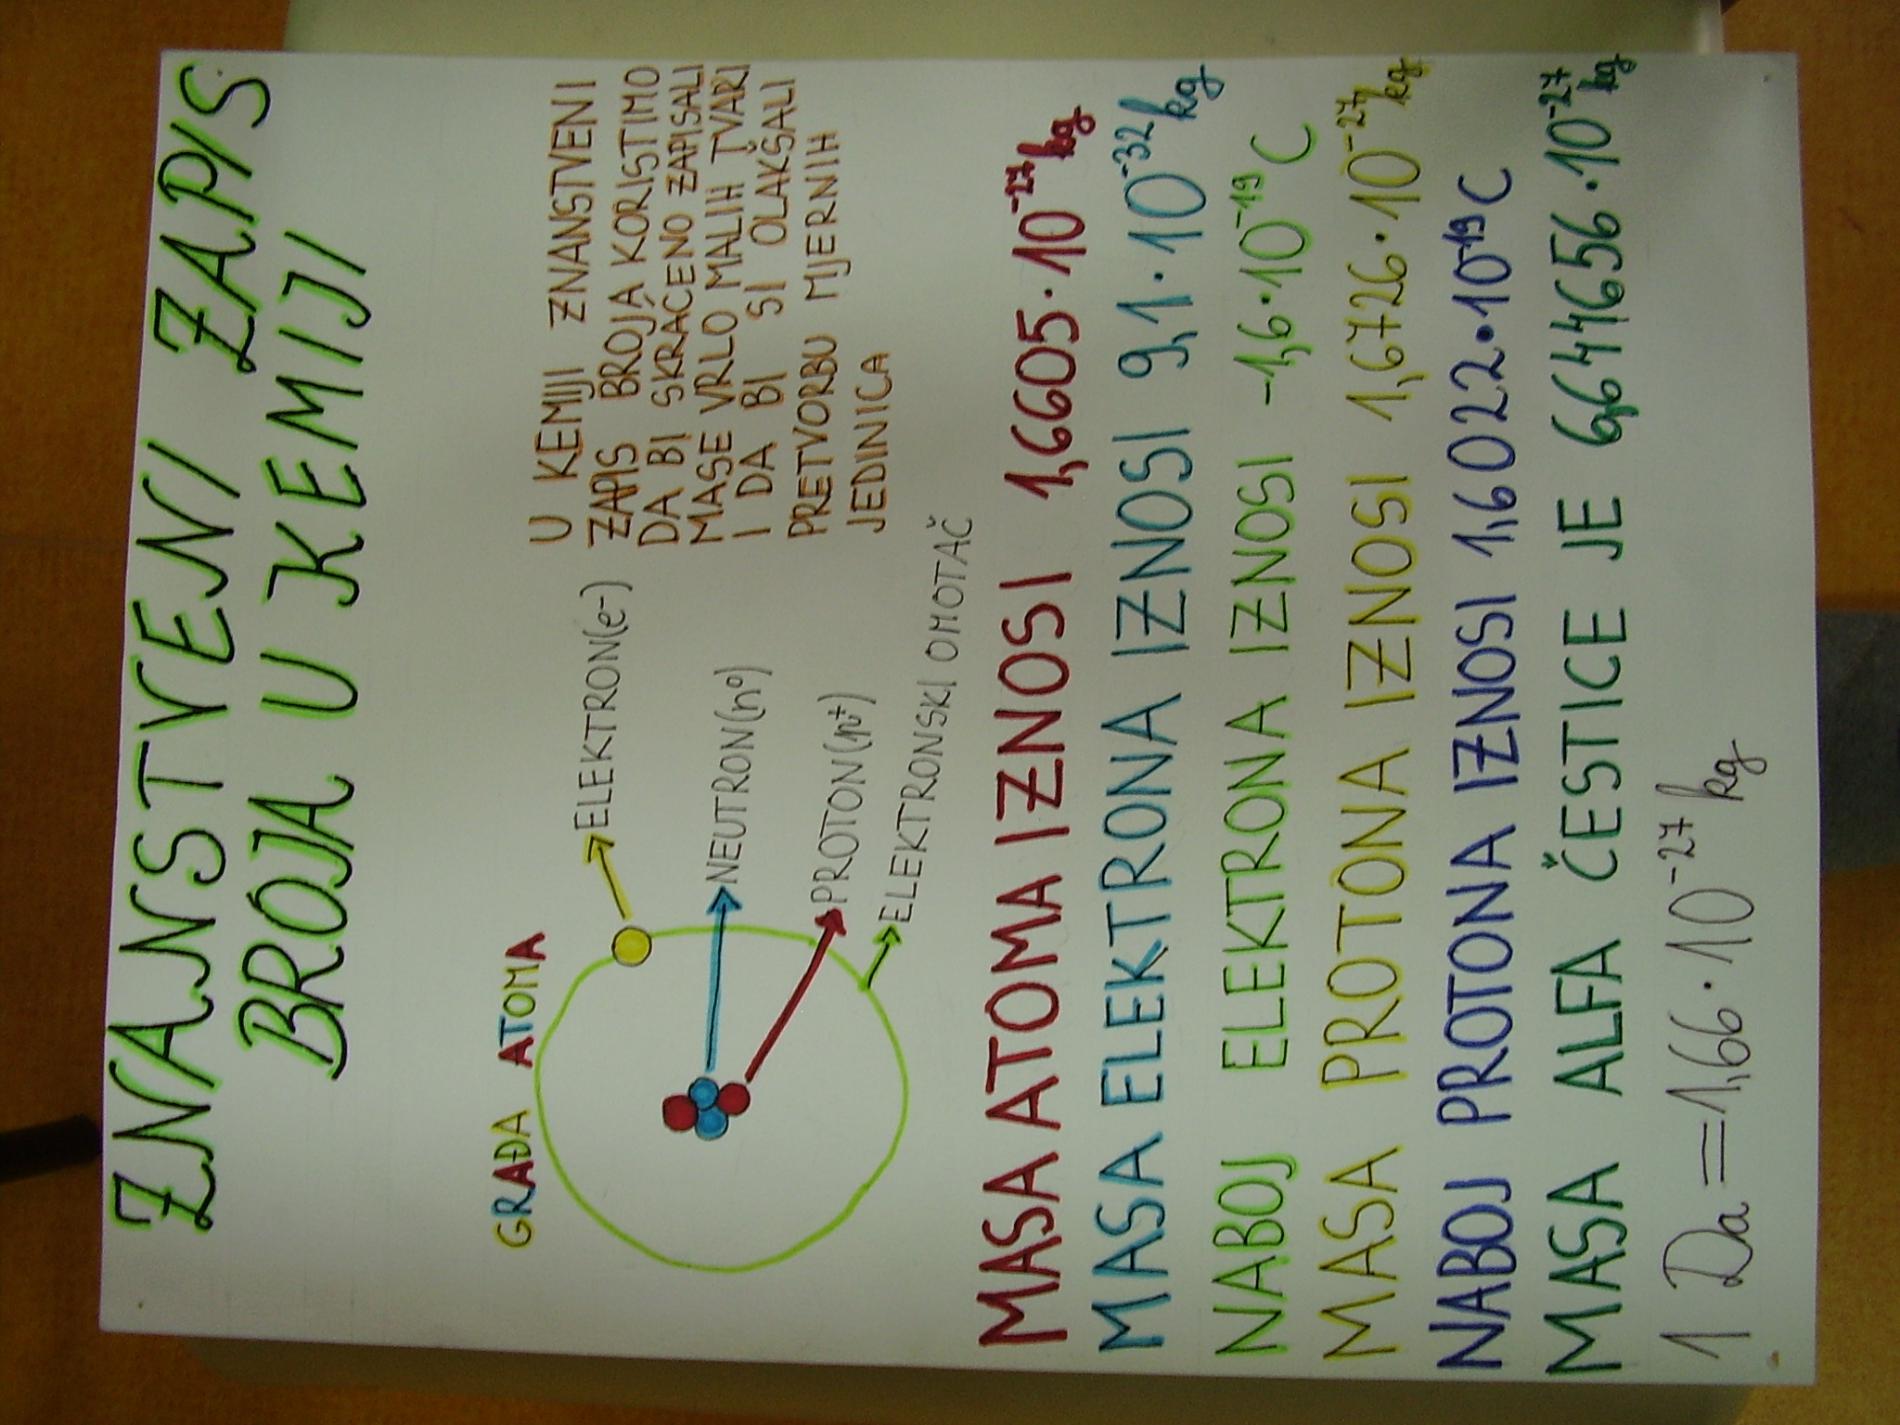 ZNANSTVENI ZAPIS
BROJA U KEMIJI
GRAĐA ATOMA
ELEKTRON(e-)
NEUTRON(n⁰)
PROTON(p⁺)
ELEKTRONSKI OMOTAČ
U KEMIJI ZNANSTVENI
ZAPIS BROJA KORISTIMO
DA BI SKRAĆENO ZAPISALI
MASE VRLO MALIH TVARI
I DA BI SI OLAKŠALI
PRETVORBU MJERNIH
JEDINICA
MASA ATOMA IZNOSI 1,6605·10⁻²⁷kg
MASA ELEKTRONA IZNOSI 9,1·10⁻³²kg
NABOJ ELEKTRONA IZNOSI -1,6·10⁻¹⁹C
MASA PROTONA IZNOSI 1,6726·10⁻²⁷kg
NABOJ PROTONA IZNOSI 1,6022·10⁻¹⁹C
MASA ALFA ČESTICE JE 6,644656·10⁻²⁷kg
1 Da=1,66·10⁻²⁷kg